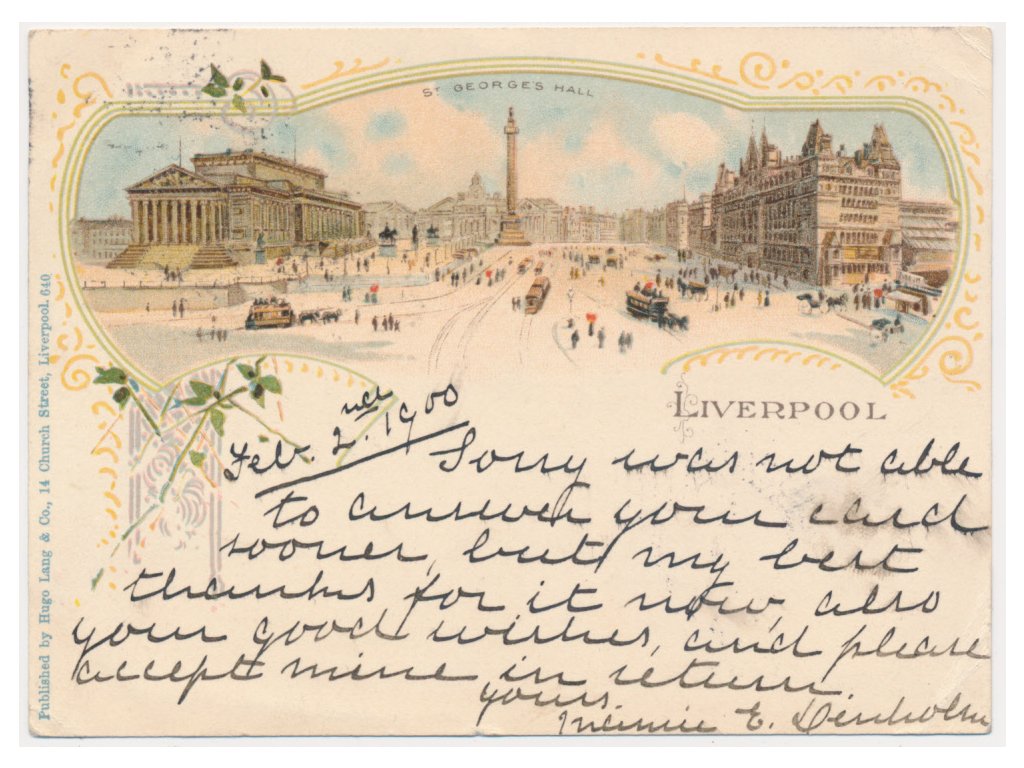 ST GEORGE'S HALL
LIVERPOOL
Published by Hugo Lang & Co., 14 Church Street, Liverpool. 640
Feb. 2nd. 1900
Sorry was not able
to answer your card
sooner, but my best
thanks for it now, also
your good wishes, and please
accept mine in return.
yours.
Minnie E. Denholm